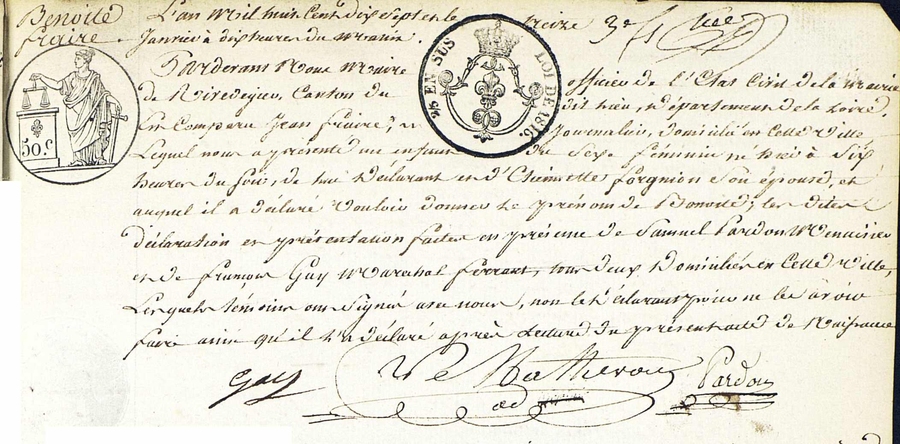 Benoite
fraire
L'an mil huit cent dix sept et le treize
Janvier à dix heures du matin.
Pardevant Nous Maire officier de l'Etat Civil de la Mairie
de Rivedegier, Canton du dit lieu, département de la Loire,
Est Comparu Jean fraire, Journalier, domicilié en cette Ville
Lequel nous a présenté un enfant du Sexe féminin né hier à Six
heures du Soir, de lui déclarant et d' son épouse, et
auquel il a déclaré Vouloir donner le prénom de Benoite; les dites
déclaration et présentation faites en présence de Samuel Pardon Menuisier
et de françois Gay Maréchal ferrant, tous deux domiciliés en cette Ville,
Lesquels témoins ont signé avec nous, non le déclarant pour ne le savoir
faire ainsi qu'il l'a déclaré après lecture du présent acte de Naissance
Gay
Matheron
Pardon
adj
50 C
2/5 EN SUS
LOI DE 1816.